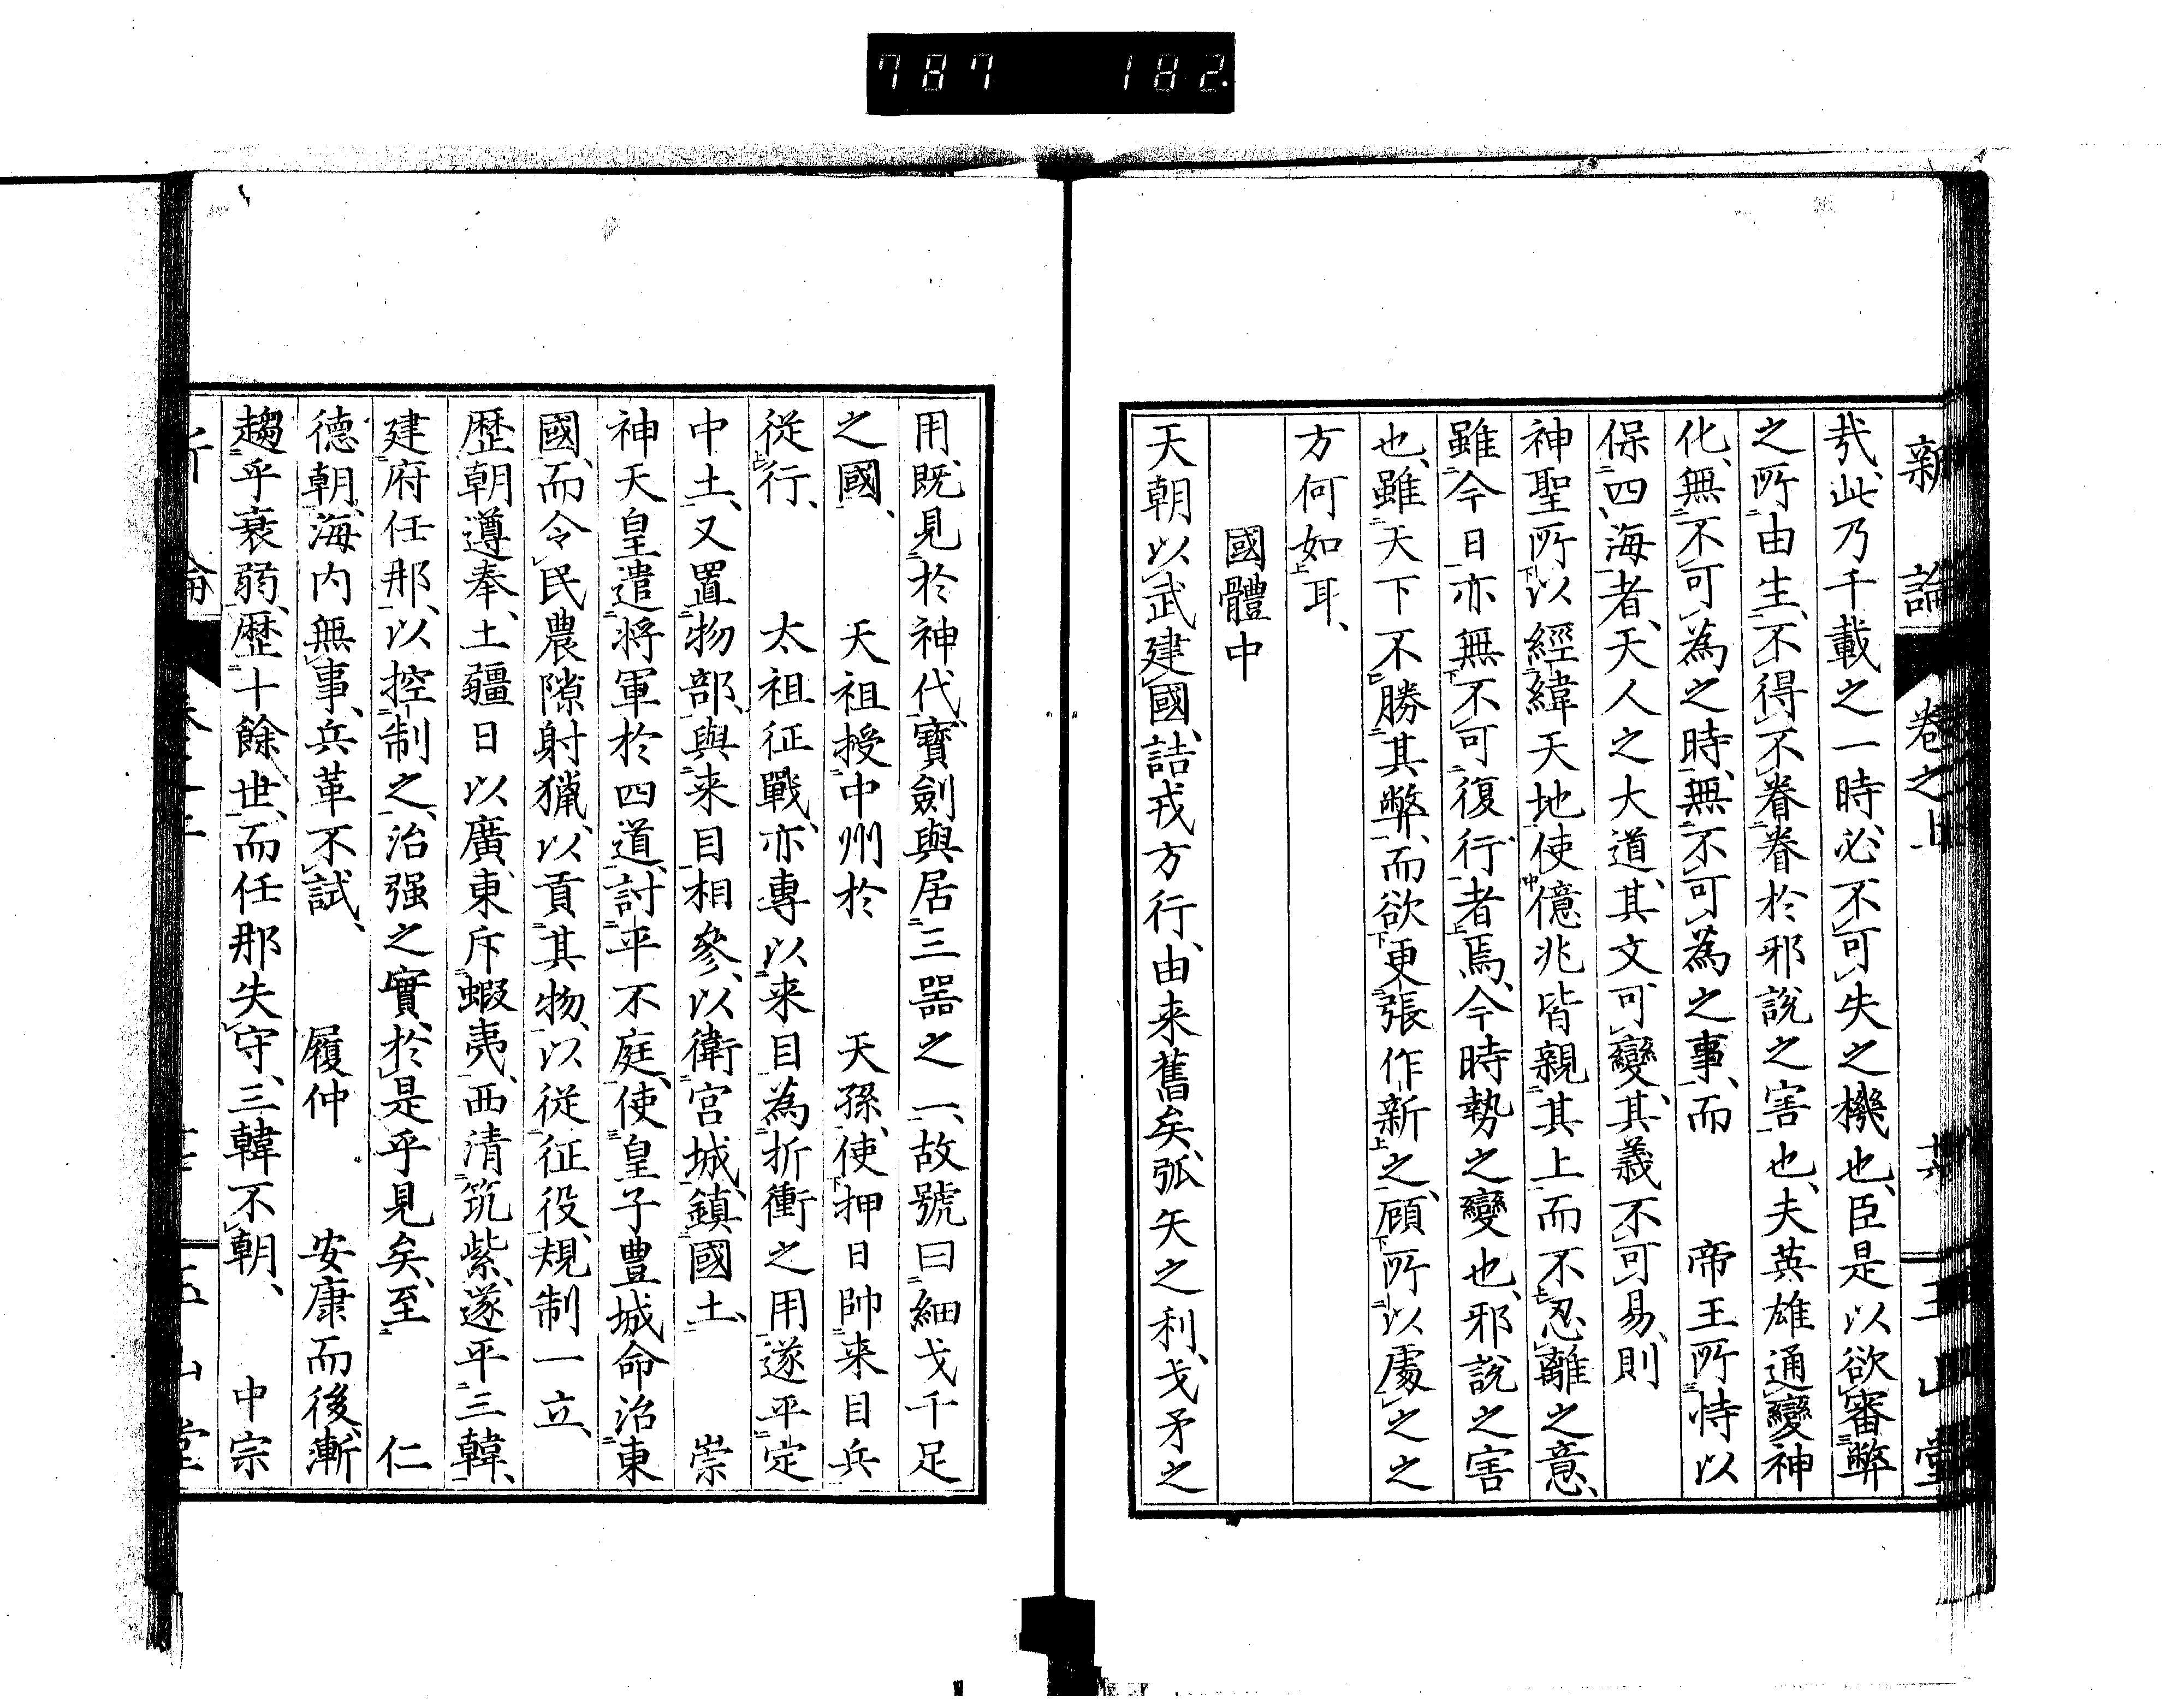 787 182.
新論 卷之上 廿六 玉山堂
哉、此乃千載之一時、必不可失之機也、臣是以欲審弊
之所由生、不得不眷眷於邪說之害也、夫英雄通變神
化、無不可為之時、無不可為之事、而 帝王所恃以
保四海者、天人之大道、其文可變、其義不可易、則
神聖所以經緯天地、使億兆皆親其上而不忍離之意、
雖今日亦無不可復行者焉、今時勢之變也、邪說之害
也、雖天下不勝其弊、而欲更張作新之、顧所以處之之
方何如耳、
國體中
天朝以武建國、詰戎方行、由来舊矣、弧矢之利、戈矛之
用、既見於神代、寶劍與居三器之一、故號曰細戈千足
之國、 天祖授中州於 天孫、使押日帥来目兵
從行、 太祖征戰、亦專以来目為折衝之用、遂平定
中土、又置物部、與来目相參、以衛宮城、鎮國土、 崇
神天皇遣將軍於四道、討平不庭、使皇子豊城命治東
國、而令民農隙射獵、以貢其物、以從征役、規制一立、
歷朝遵奉、土疆日以廣、東斥蝦夷、西清筑紫、遂平三韓、
建府任那、以控制之、治强之實、於是乎見矣、至 仁
德朝、海内無事、兵革不試、 履仲 安康而後、漸
趨乎衰弱、歴十餘世、而任那失守、三韓不朝、 中宗